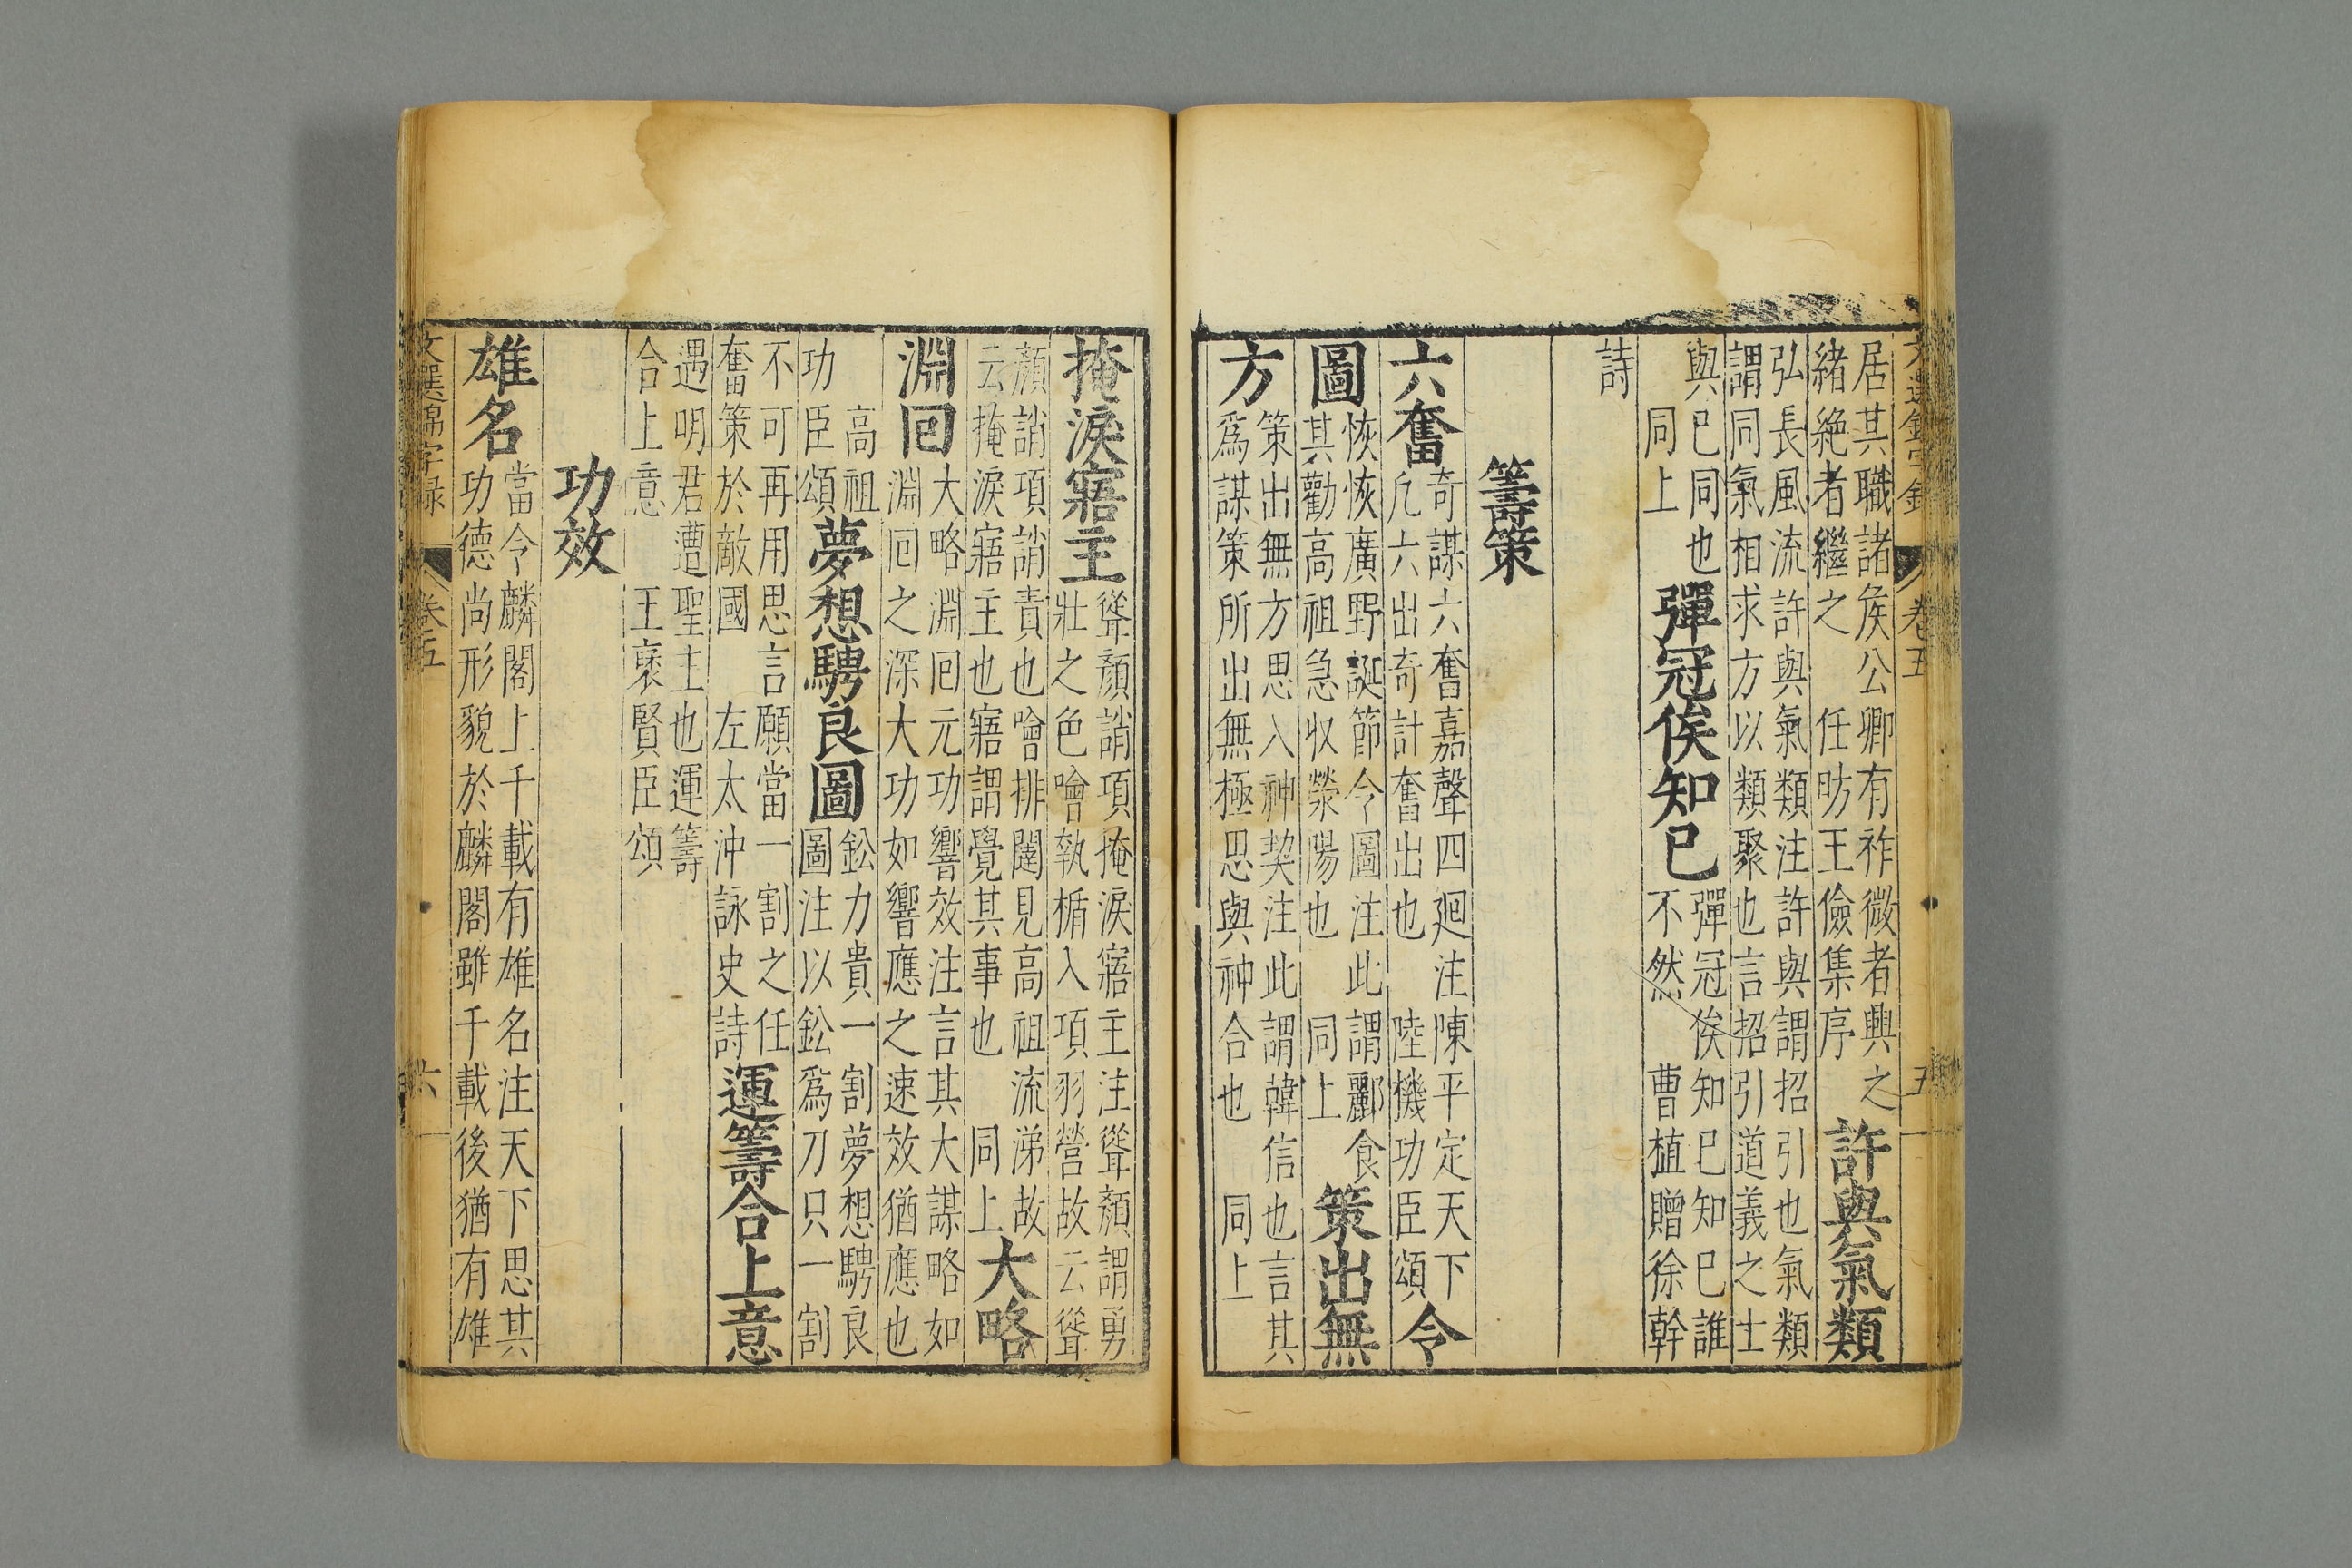 文選錦字錄 卷五 五
居其職諸矦公卿有祚微者興之
緒絶者繼之 任昉王儉集序
許與氣類
弘長風流許與氣類注許與謂招引也氣類
謂同氣相求方以類聚也言招引道義之士
與已同也
同上
彈冠俟知已
彈冠俟知已知已誰
不然 曹植贈徐幹
詩
籌策
六奮
奇謀六奮嘉聲四廻注陳平定天下
凢六出奇計奮出也 陸機功臣頌
令
圖
恢恢廣野誕節令圖注此謂酈食
其勸高祖急收滎陽也 同上
策出無
方
策出無方思入神契注此謂韓信也言其
爲謀策所出無極思與神合也 同上
掩淚寤主
聳顔誚項掩淚寤主注聳顔謂勇
壯之色噲執楯入項羽營故云聳
顔誚項誚責也噲排闥見高祖流涕故
云掩淚寤主也寤謂覺其事也 同上
大略
淵囘
大略淵囘元功響效注言其大謀略如
淵囘之深大功如響應之速效猶應也
功 高祖
臣頌
夢想騁良圖
鈆刀貴一割夢想騁良
圖注以鈆爲刀只一割
不可再用思言願當一割之任
奮策於敵國 左太沖詠史詩
運籌合上意
遇明君遭聖主也運籌
合上意 王襃賢臣頌
功效
雄名
當令麟閣上千載有雄名注天下思其
功德尚形貌於麟閣雖千載後猶有雄
文選錦字録 卷五 六